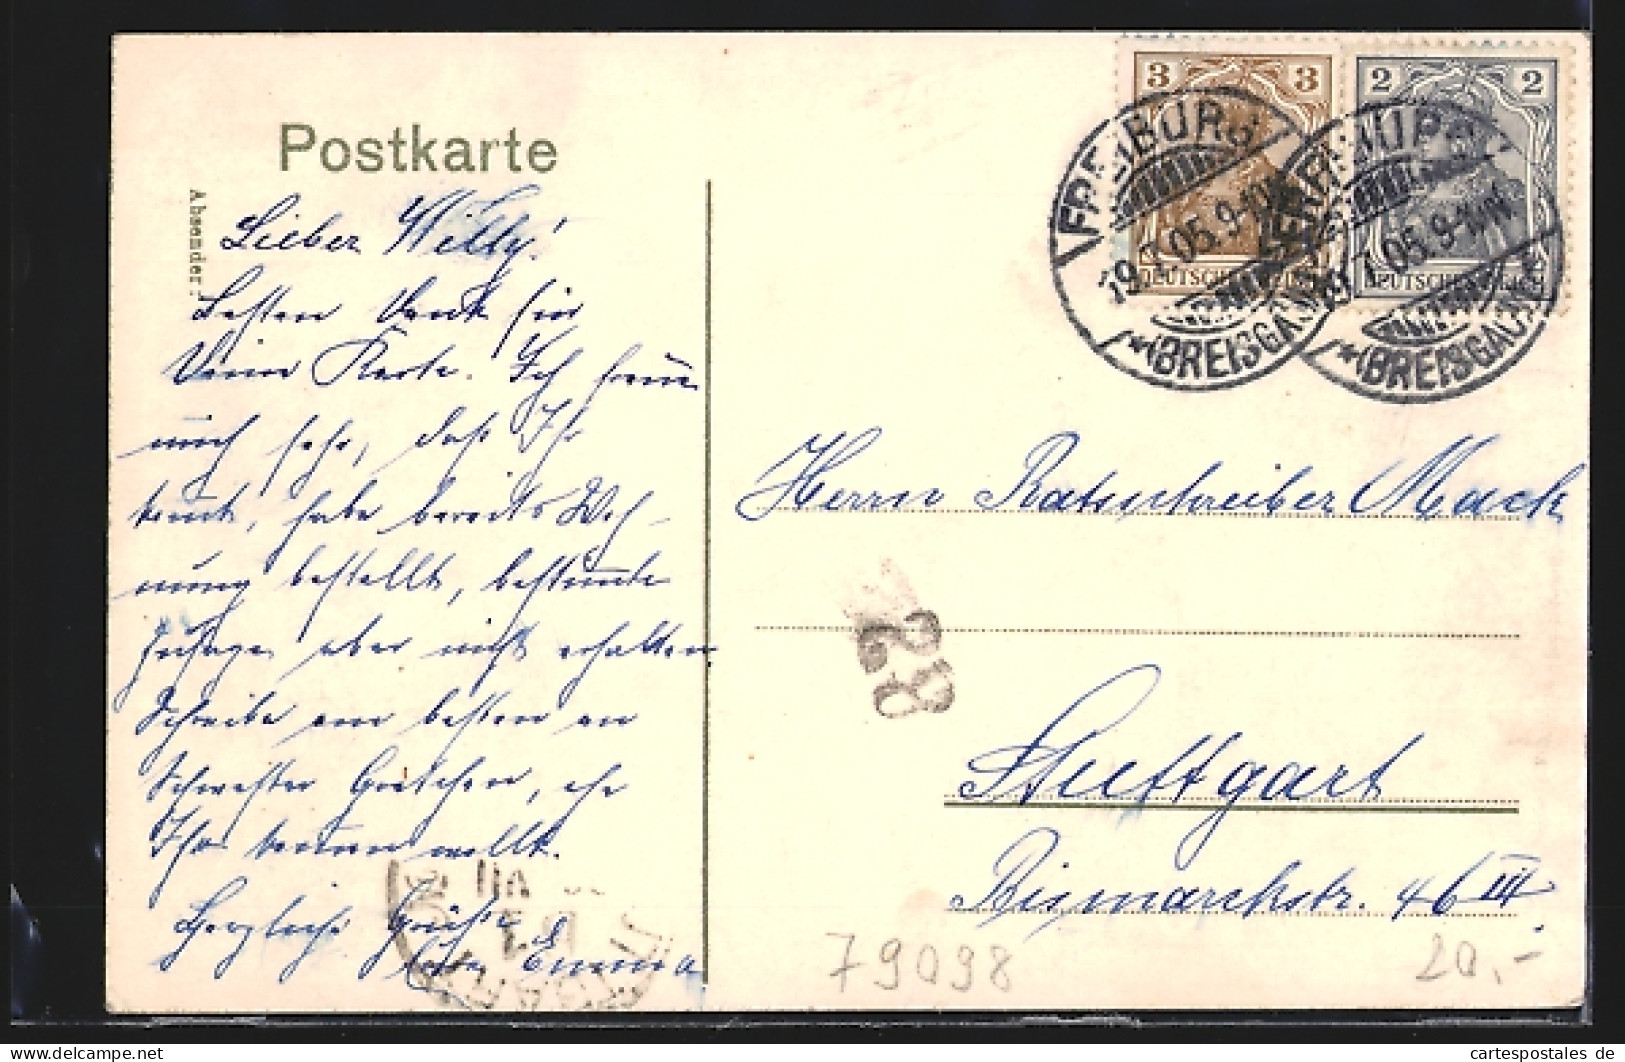 Postkarte
Absender:
Lieber Willy!
Besten Dank für
Deine Karte. Ich freue
mich sehr, daß Ihr
kommt, habe bereits Woh-
nung bestellt, bestimmte
Zusage aber nicht erhalten
Schreibe am besten an
Schwester Gretchen, ehe
Ihr kommen wollt.
Herzliche Grüße
Emma
3 3
DEUTSCHES REICH
2 2
DEUTSCHES REICH
FREIBURG
19. .05. 9-10V.
*(BREISGAU)
FREIBURG
19. .05. 9-10V.
*(BREISGAU)
Herrn Ratschreiber Mack
28
Stuttgart
Bismarckstr. 46 III.
79098
20,-
www.delcampe.net
cartespostales de